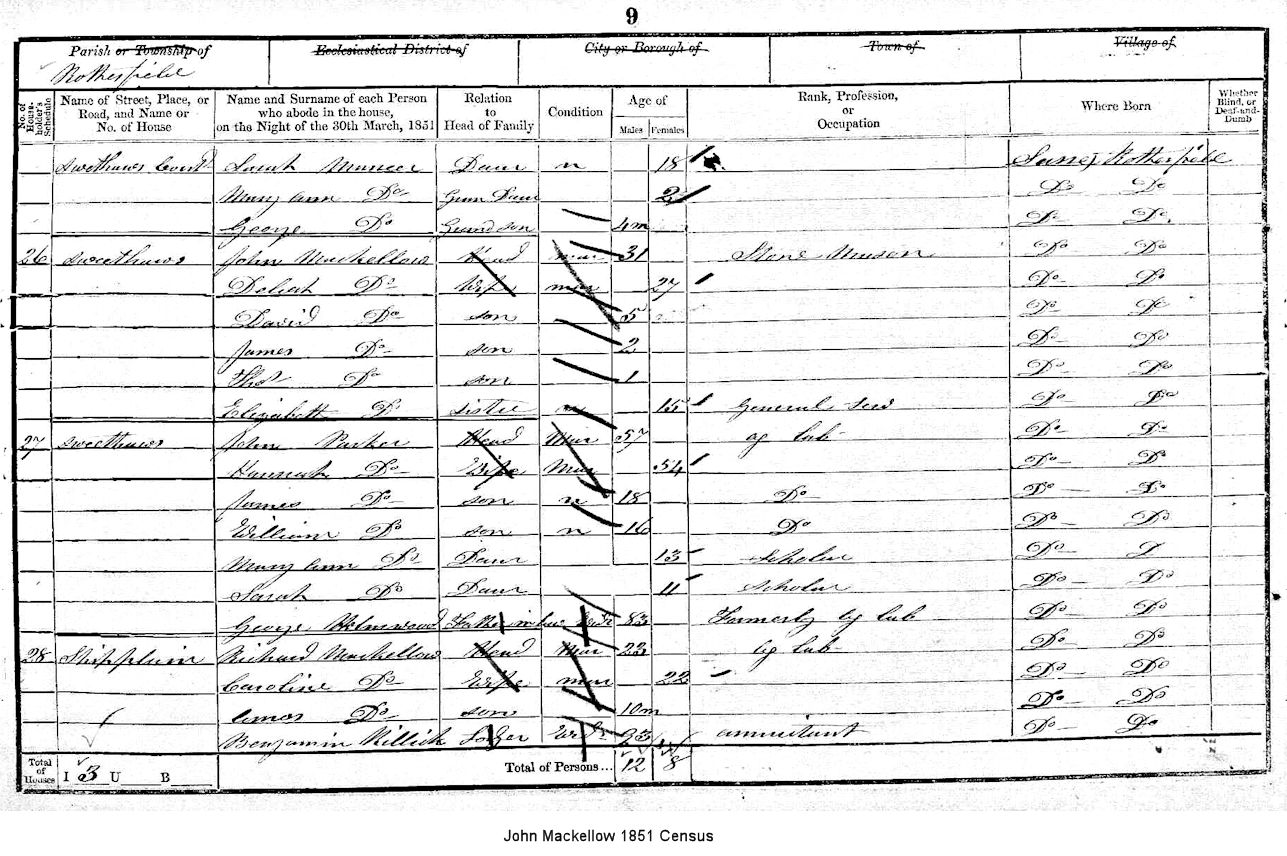 9
Parish or Township of Ecclesiastical District of City or Borough of Town of Village of
Rotherfield
No. of Householder's Schedule Name of Street, Place, or Road, and Name or No. of House Name and Surname of each Person who abode in the house, on the Night of the 30th March, 1851 Relation to Head of Family Condition Age of Males Females Rank, Profession, or Occupation Where Born Whether Blind, or Deaf-and-Dumb
Sarah Daur 18 Rotherfield
Mary Ann Do Daur 2 Do Do
George Do Grand son 4m Do Do
26 Sweethaws John Mackellow Head Mar 31 Stone Mason Do Do
Do Wife mar 27 Do Do
David Do son 5 Do Do
James Do son 2 Do Do
Thos Do son 1 Do Do
Elizabeth Do sister 15 General Do Do
27 Sweethaws John Parker Head Mar 57 ag lab Do Do
Hannah Do Wife Mar 54 Do Do
James Do son 18 Do Do Do
William Do son 16 Do Do Do
Mary Ann Do Daur 13 Scholar Do D
Sarah Do Daur 11 scholar Do Do
George Father in law 83 Formerly ag lab Do Do
28 Richard Mackellow Head Mar 23 ag lab Do Do
Caroline Do Wife mar 22 Do Do
Amos Do son 10m Do Do
Benjamin Killick Lodger 23 annuitant Do Do
Total of Houses I 3 U B Total of Persons... 12 8
John Mackellow 1851 Census